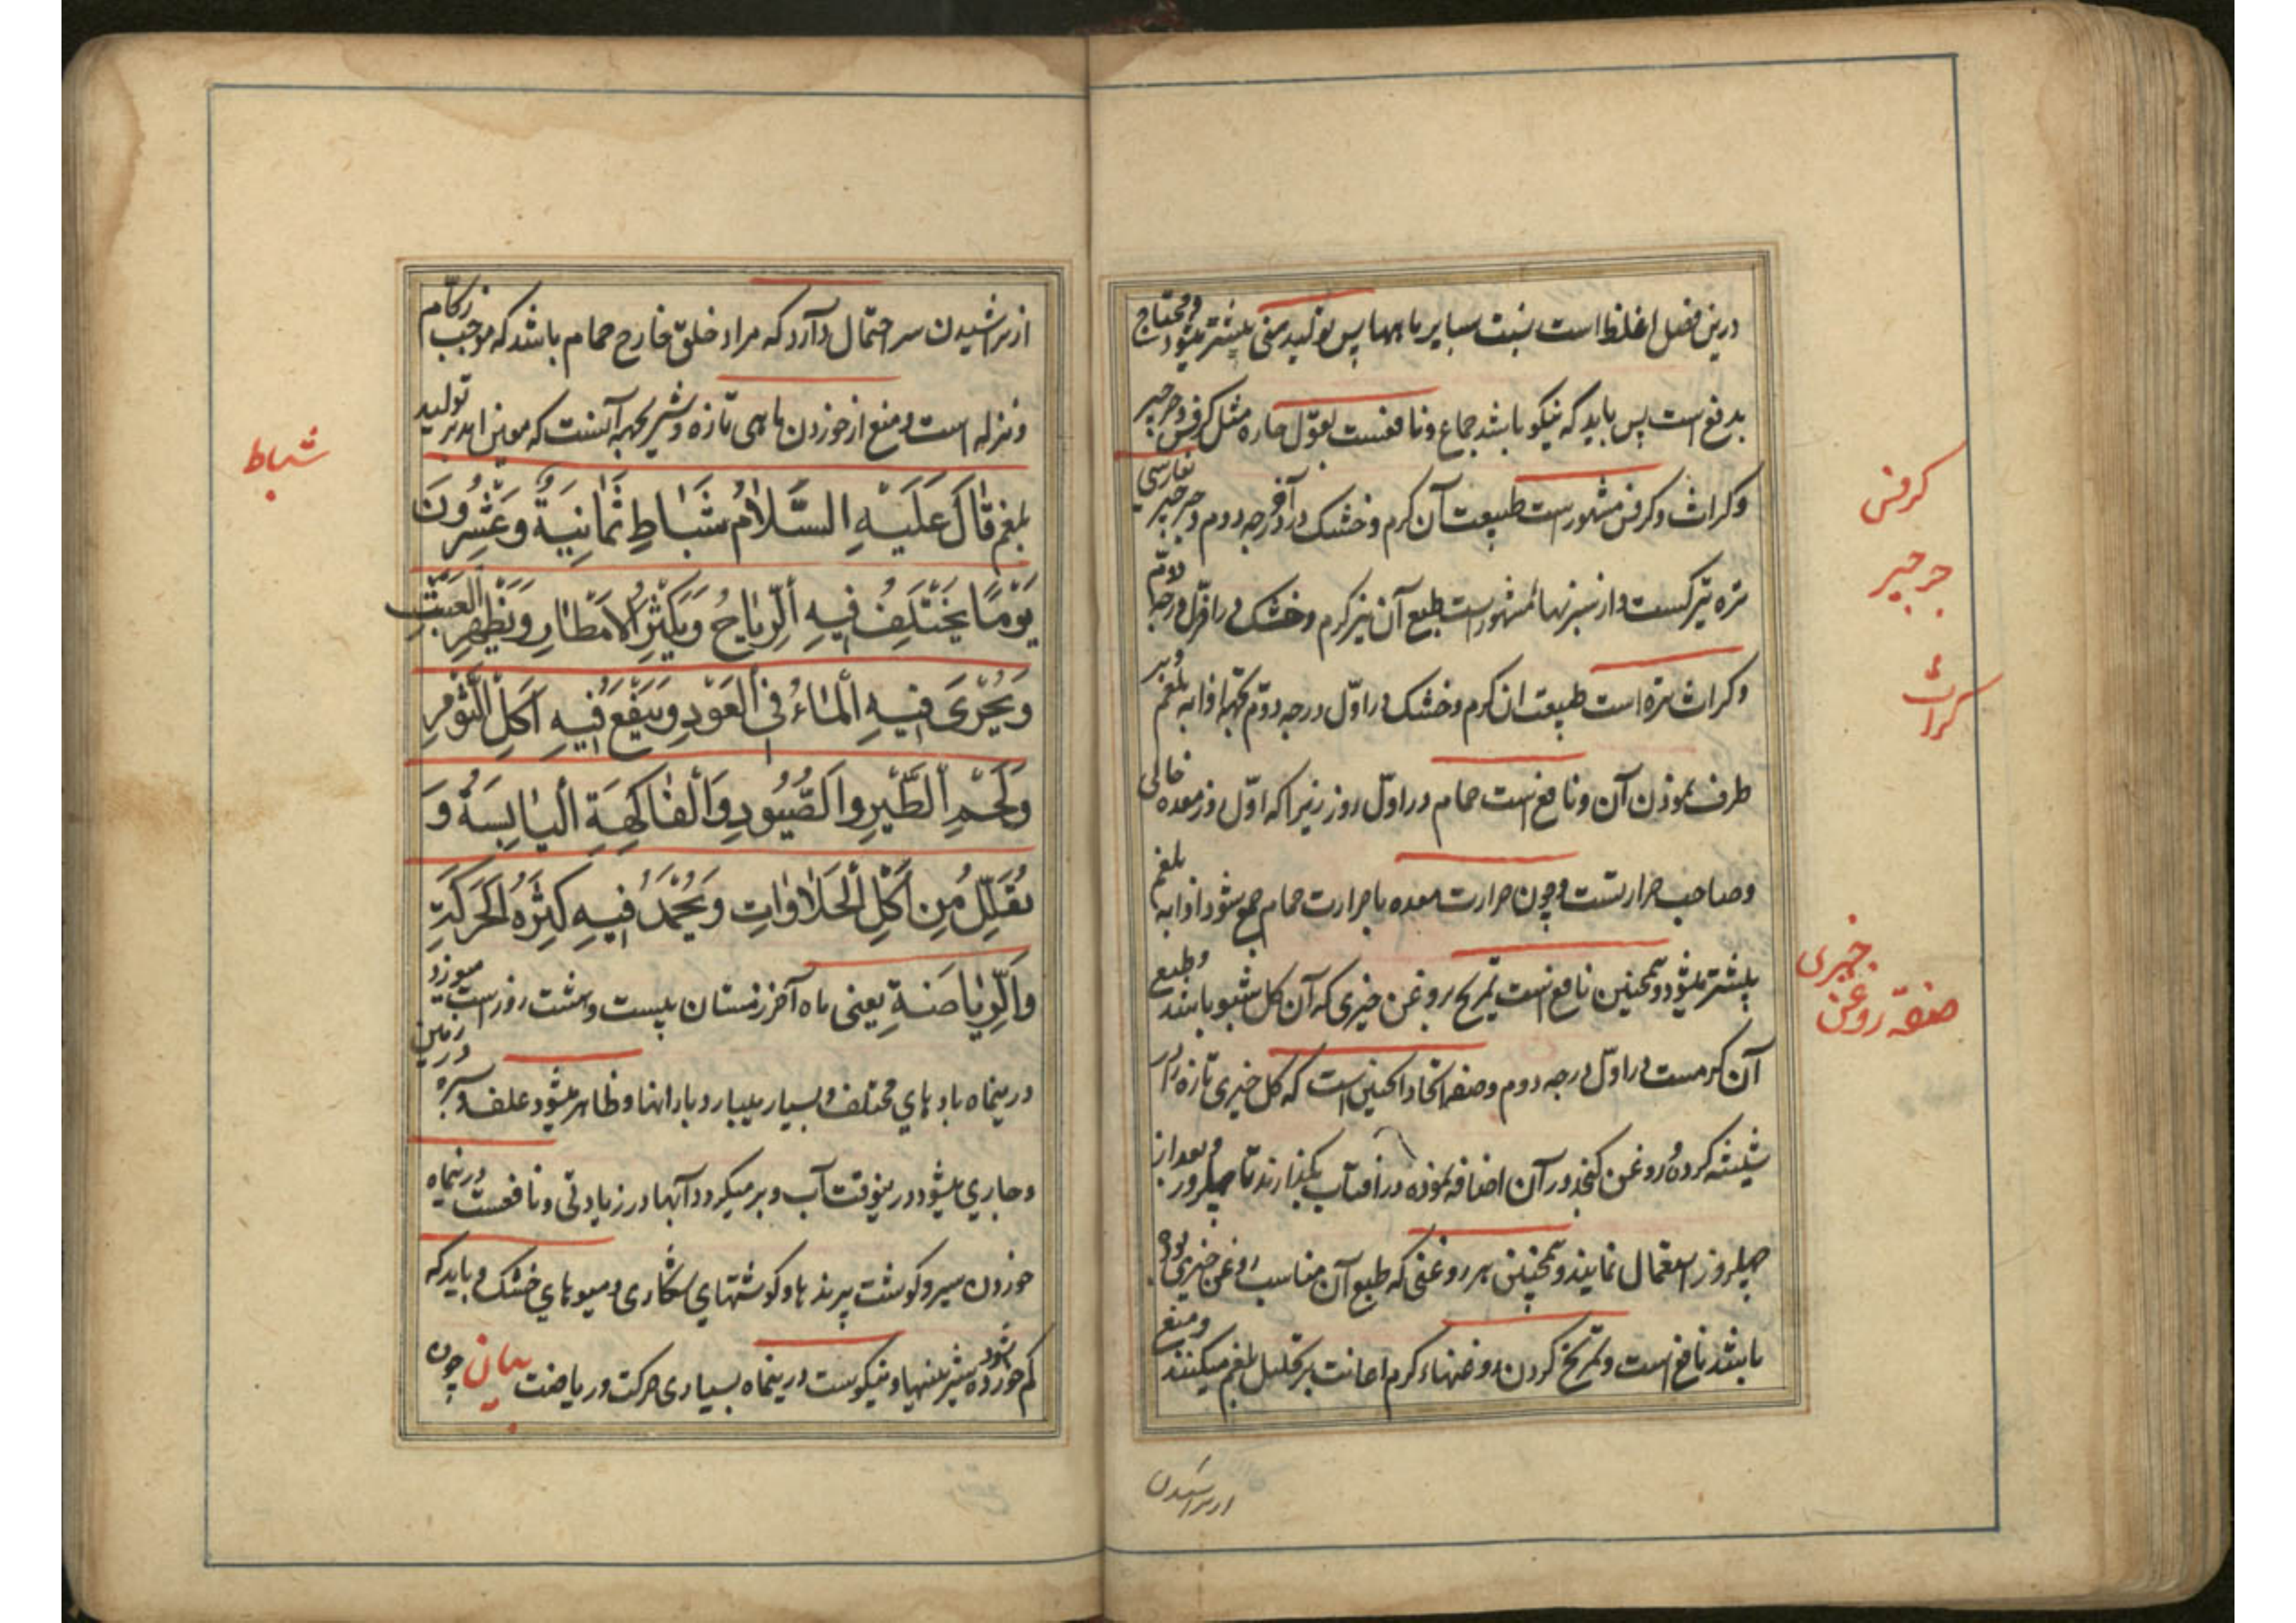 درین فصل اغلظ است بنسبت سایر ماهها پس تولید منی بیشتر میشود و محتاج
بدفع است پس باید که نیکو باشد جماع و نافعست بقول حاره مثل کرفس و جرجیر
و کراث و کرفس مشهورست طبیعت آن کرم و خشک در آخر درجه دوم و جرجیر بفارسی
تره تیزکست و از سبزیها مشهورست طبع آن نیز کرم و خشک در اول درجه دوم
و کراث تره است طبیعت ان کرم و خشک در اوّل درجه دوّم بجهة اذابه بلغم و بر
طرف نمودن آن و نافع است حمام در اوّل روز زیرا که اوّل روز معده خالی
و صاحب حرارتست و چون حرارت معده با حرارت حمام جمع شود اذابه بلغم
بیشتر میشود و همچنین نافع است تمریخ بروغن خیری که آن کل شببو باشد و طبع
آن کرمست در اوّل درجه دوم و صنعه اتخاذ اینچنین است که کل خیری تازه را در
شیشه کرده و روغن کنجد در آن اضافه نموده در آفتاب بگذارند تا چهلروز و بعد از
چهلروز استعمال نمایند و همچنین هر روغنی که طبع آن مناسب روغن خیری بوده
باشد نافع است و تمریخ کردن روغنهاء کرم اعانت بر تحلیل بلغم میکنند و منع
از تراشیدن
کرفس
جرجیر
کراث
خیری
صنعه روغن
از تراشیدن سر احتمال دارد که مراد خلق خارج حمام باشد که موجب زکام
و نزله است و منع از خوردن ماهی تازه و شیر بجهة آنست که معین اند بر تولید
بلغم قَالَ عَلَيْهِ السَّلَامُ شَبَاطِ ثَمَانِيَةُ وَعَشِرُونَ
يَوْمًا يَخْتَلِفُ فِيهِ الرِّيَاحُ وَيَكْثِرُ الْأَمْطَارِ وَيَظْهِرُ الْعَشَبَ
وَيُجْرَى فِيهِ الْمَاءُ فِي الْعَوْدِ وَيَنْفَعُ فِيهِ أَكَلِ الثَّوْمِ
وَلَحْمِ الطَّيْرِ وَالصُّيُودِ وَالْفَاكِهَةِ الْيَابِسَةُ وَ
يُقَلِّلُ مِن أَكْلِ الْحَلَاوَاتِ وَيُحْمَدُ فِيهِ كَثِرَةُ الْحَرَكَةِ
وَالرِّيَاضَةِ یعنی ماه آخر زمستان بیست و هشت روز است میوزد
درینماه بادهای مختلف و بسیار میبارد بارانها و ظاهر میشود علف و سبزه در زمین
و جاری میشود درینوقت آب و بر میکردد آبها در زیادتی و نافعست درینماه
خوردن سیر و کوشت پرندها و کوشتهای شکاری و میوهای خشک و باید که
کم خورده شود شیرینیها و نیکوست درینماه بسیاری حرکت و ریاضت بیان چون
شباط